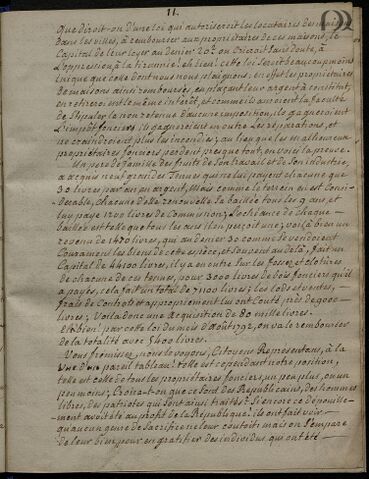 11.
Que diroit-on d'une loi qui autoriseroit les locataires des maisons
dans les villes, à rembourser aux propriétaires de ces maisons, le
Capital de leur loyer au denier 20.e on crieroit sans doute, à
l'oppression, à la tirannie! eh bien! cette loi seroit beaucoup moins
inique que celle dont nous nous plaignons; en effet les propriétaires
de maisons ainsi remboursés, en plaçant leur argent à constitut,
en retireroient le même intérêt, et comme ils auroient la faculté
de stipuler la non retenue d'aucune imposition, ils gagneroient
L'impôt foncier; ils gagneroient en outre les réparations, et
ne craindroient plus les incendies; au lieu que les malheureux
propriétaires fonciers perdent presque tout, en voici la preuve.
Un pere de famille des fruits de son travail et de son industrie,
a acquis neuf grandes Tenues qui ne lui payent chacune que
30 livres par an en argent, Mais comme le terrein en est Consi-
dérable, chacune d'elle renouvelle sa baillée tous les 9 ans, et
lui paye 1200 livres de Commission; L'echéance de chaque
baillée est telle que tous les ans il en perçoit une; voilà bien un
revenu de 1470 livres, qui au denier 30 comme se vendoient
Couramment les biens de cette espèce, et souvent au delà, fait un
Capital de 44100 livres, il y a en outre sur les fossés et clotures
de chacune de ces tenues, pour 3000 livres de bois foncier qu'il
a payés, cela fait un total de 71100 livres; les lods et ventes,
frais de Contrats et appropriement lui ont Couté près de 9000
livres; Voila donc une acquisition de 80 mille livres.
Et bien! par cette loi du mois d'août 1792, on va le rembourser
de la totalité avec 5400 livres.
Vous frémissez, nous le voyons, Citoyens Représentans, à la
vue d'un pareil tableau! telle est cependant notre position,
telle est celle de tous les propriétaires fonciers, un peu plus, ou un
peu moins; Croira-t-on que ce sont des Républicains, des hommes
libres, des patriotes qui sont ainsi traités? Si encore ce dépouille-
ment avoit été au profit de la République! ils ont fait voir
qu'aucun genre de Sacrifice ne leur coutoit; mais on s'empare
de leur bien pour en gratifier des individus qui ont été